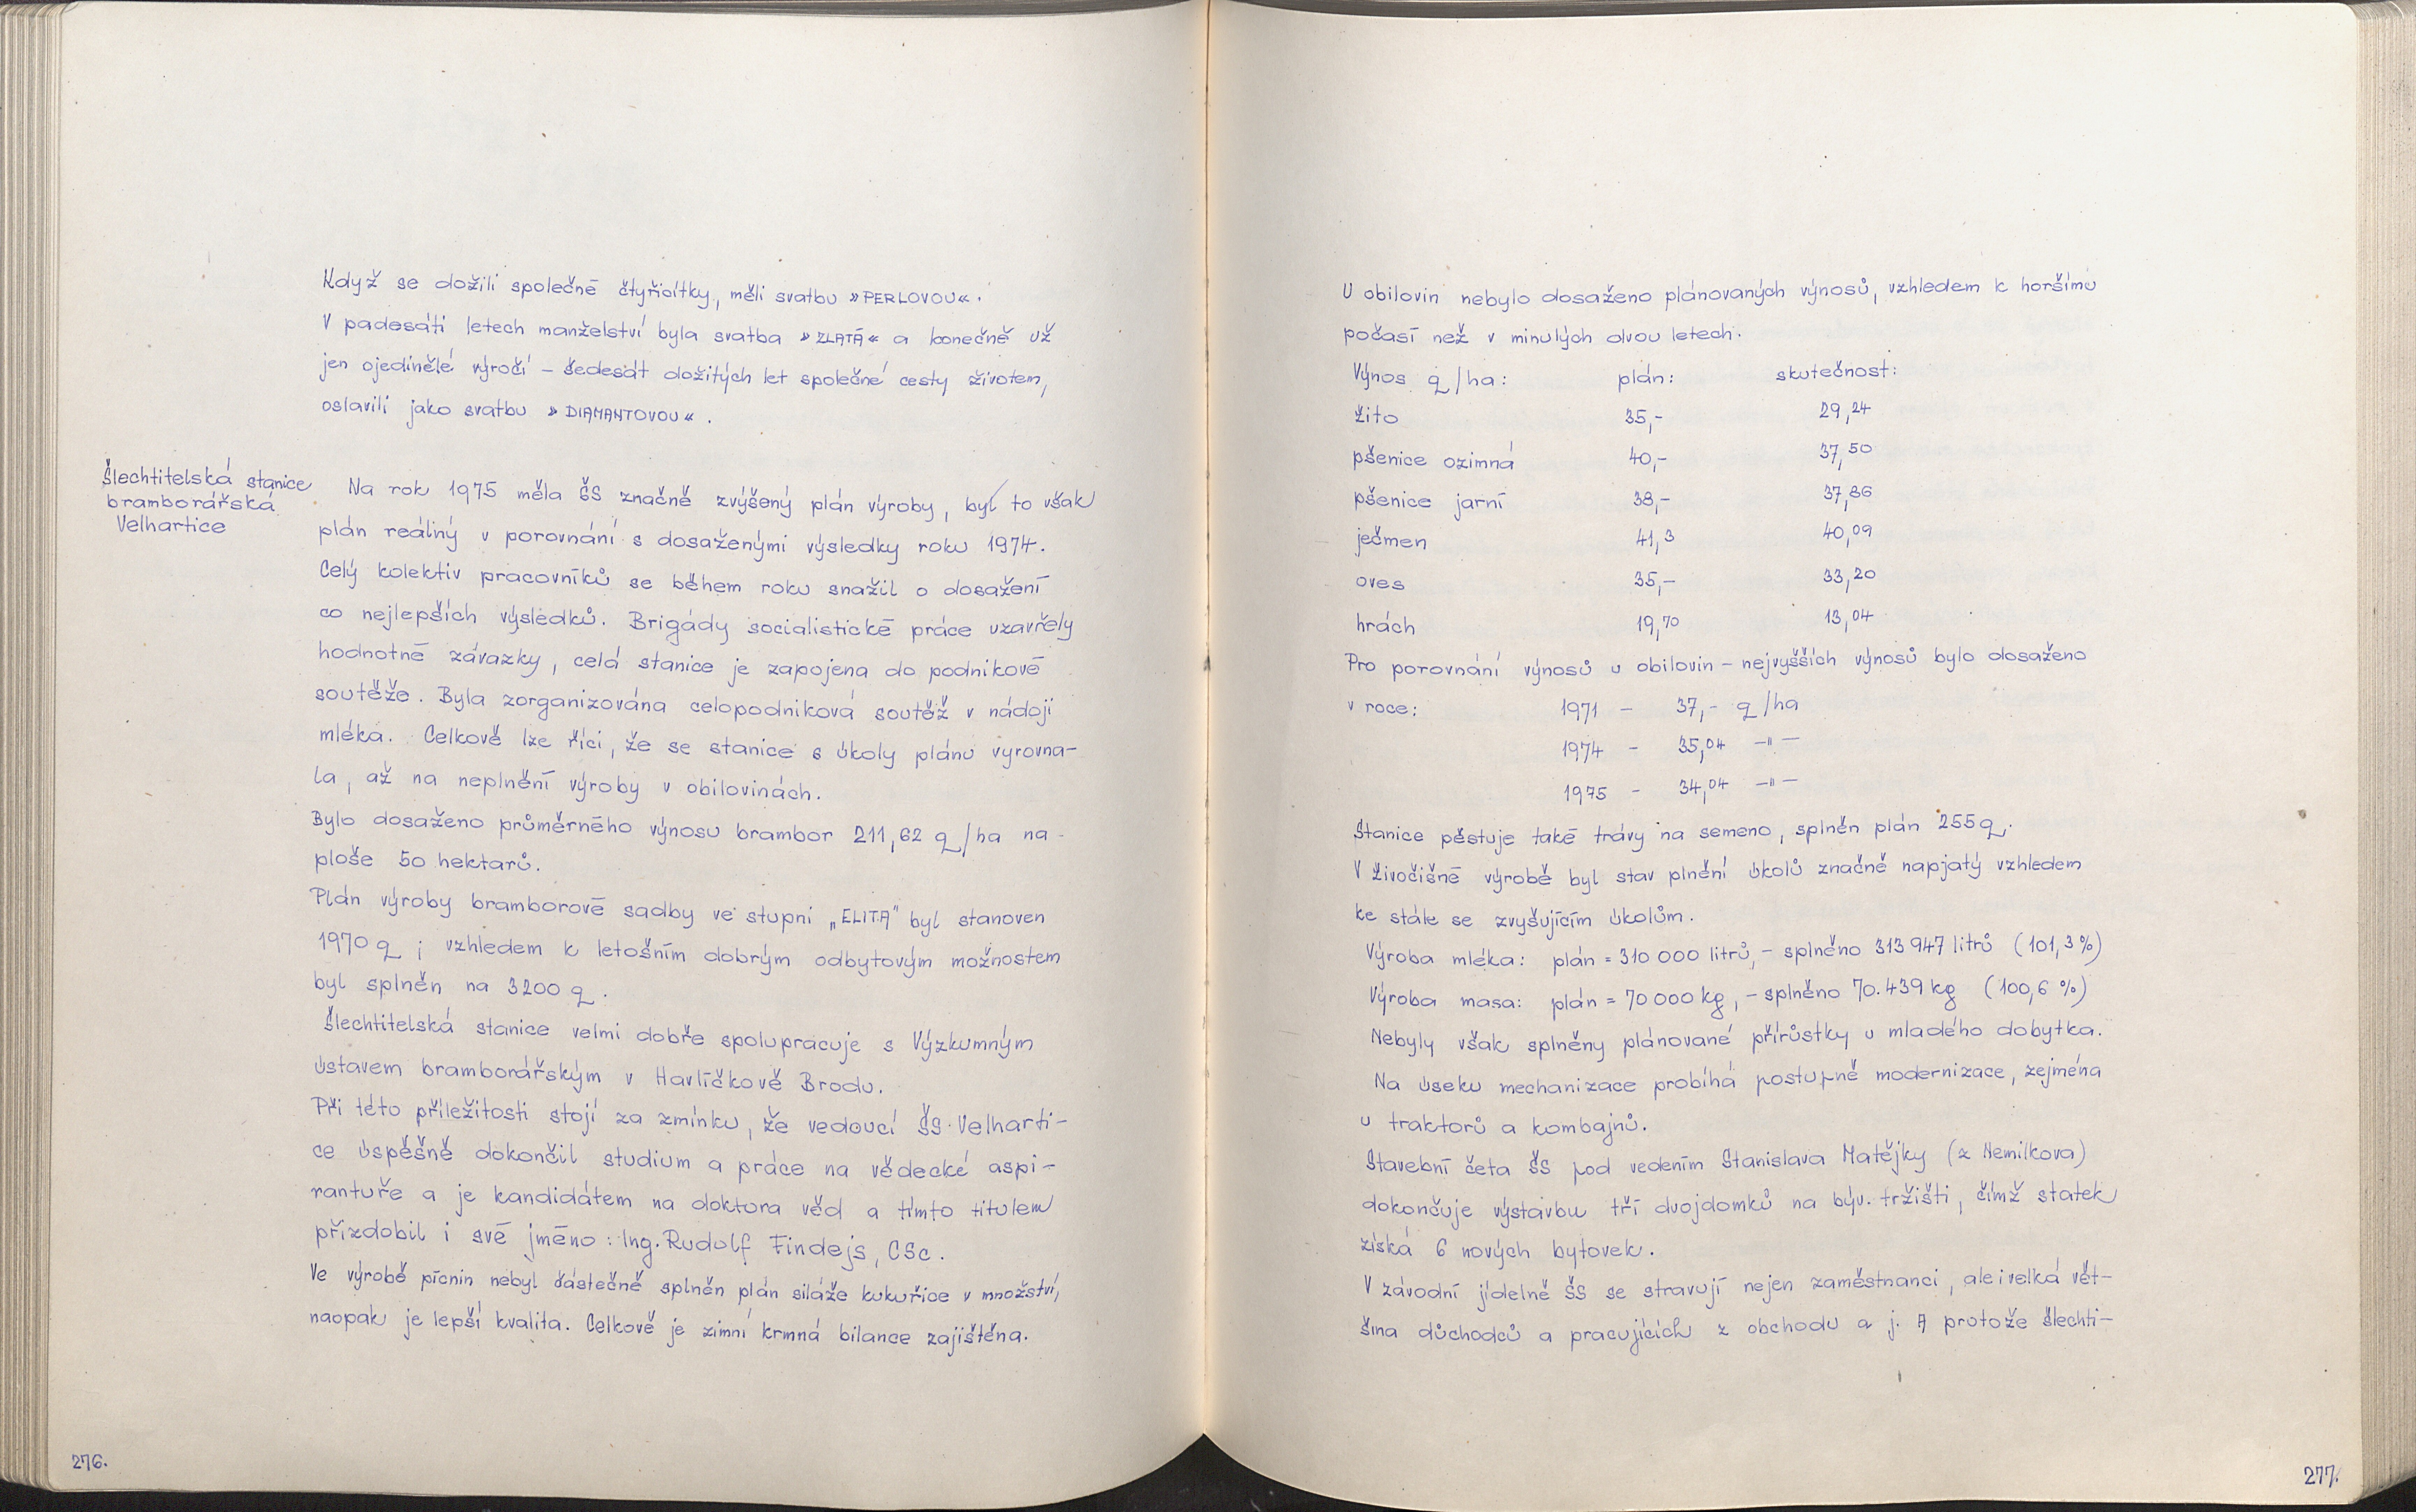 Když se dožili společné čtyřicítky, měli svatbu »PERLOVOU«.
V padesáti letech manželství byla svatba »ZLATÁ« a konečně už
jen ojedinělé výročí – šedesát dožitých let společné cesty životem,
oslavili jako svatbu »DIAMANTOVOU«.
Šlechtitelská stanice
bramborářská
Velhartice
Na rok 1975 měla ŠS značně zvýšený plán výroby, byl to však
plán reálný v porovnání s dosaženými výsledky roku 1974.
Celý kolektiv pracovníků se během roku snažil o dosažení
co nejlepších výsledků. Brigády socialistické práce uzavřely
hodnotné závazky, celá stanice je zapojena do podnikové
soutěže. Byla zorganizována celopodniková soutěž v nádoji
mléka. Celkově lze říci, že se stanice s úkoly plánu vyrovna-
la, až na neplnění výroby v obilovinách.
Bylo dosaženo průměrného výnosu brambor 211,62 q/ha na
ploše 50 hektarů.
Plán výroby bramborové sadby ve stupni „ELITA" byl stanoven
1970 q ; vzhledem k letošním dobrým odbytovým možnostem
byl splněn na 3200 q.
Šlechtitelská stanice velmi dobře spolupracuje s Výzkumným
ústavem bramborářským v Havlíčkově Brodu.
Při této příležitosti stojí za zmínku, že vedoucí ŠS Velharti-
ce úspěšně dokončil studium a práce na vědecké aspi-
rantuře a je kandidátem na doktora věd a tímto titulem
přizdobil i své jméno: Ing. Rudolf Findejs, CSc.
Ve výrobě pícnin nebyl částečně splněn plán siláže kukuřice v množství,
naopak je lepší kvalita. Celkově je zimní krmná bilance zajištěna.
276.
U obilovin nebylo dosaženo plánovaných výnosů, vzhledem k horšímu
počasí než v minulých dvou letech.
Výnos q/ha: plán: skutečnost:
žito 35,- 29,24
pšenice ozimná 40,- 37,50
pšenice jarní 38,- 37,86
ječmen 41,3 40,09
oves 35,- 33,20
hrách 19,70 13,04
Pro porovnání výnosů u obilovin – nejvyšších výnosů bylo dosaženo
v roce: 1971 – 37,- q/ha
1974 – 35,04 –"–
1975 – 34,04 –"–
Stanice pěstuje také trávy na semeno, splněn plán 255 q.
V živočišné výrobě byl stav plnění úkolů značně napjatý vzhledem
ke stále se zvyšujícím úkolům.
Výroba mléka: plán = 310 000 litrů, – splněno 313 947 litrů (101,3 %)
Výroba masa: plán = 70 000 kg, – splněno 70.439 kg (100,6 %)
Nebyly však splněny plánované přírůstky u mladého dobytka.
Na úseku mechanizace probíhá postupně modernizace, zejména
u traktorů a kombajnů.
Stavební četa ŠS pod vedením Stanislava Matějky (z Nemilkova)
dokončuje výstavbu tří dvojdomků na býv. tržišti, čímž statek
získá 6 nových bytovek.
V závodní jídelně ŠS se stravují nejen zaměstnanci, ale i velká vět-
šina důchodců a pracujících z obchodu a j. A protože šlechti-
277.